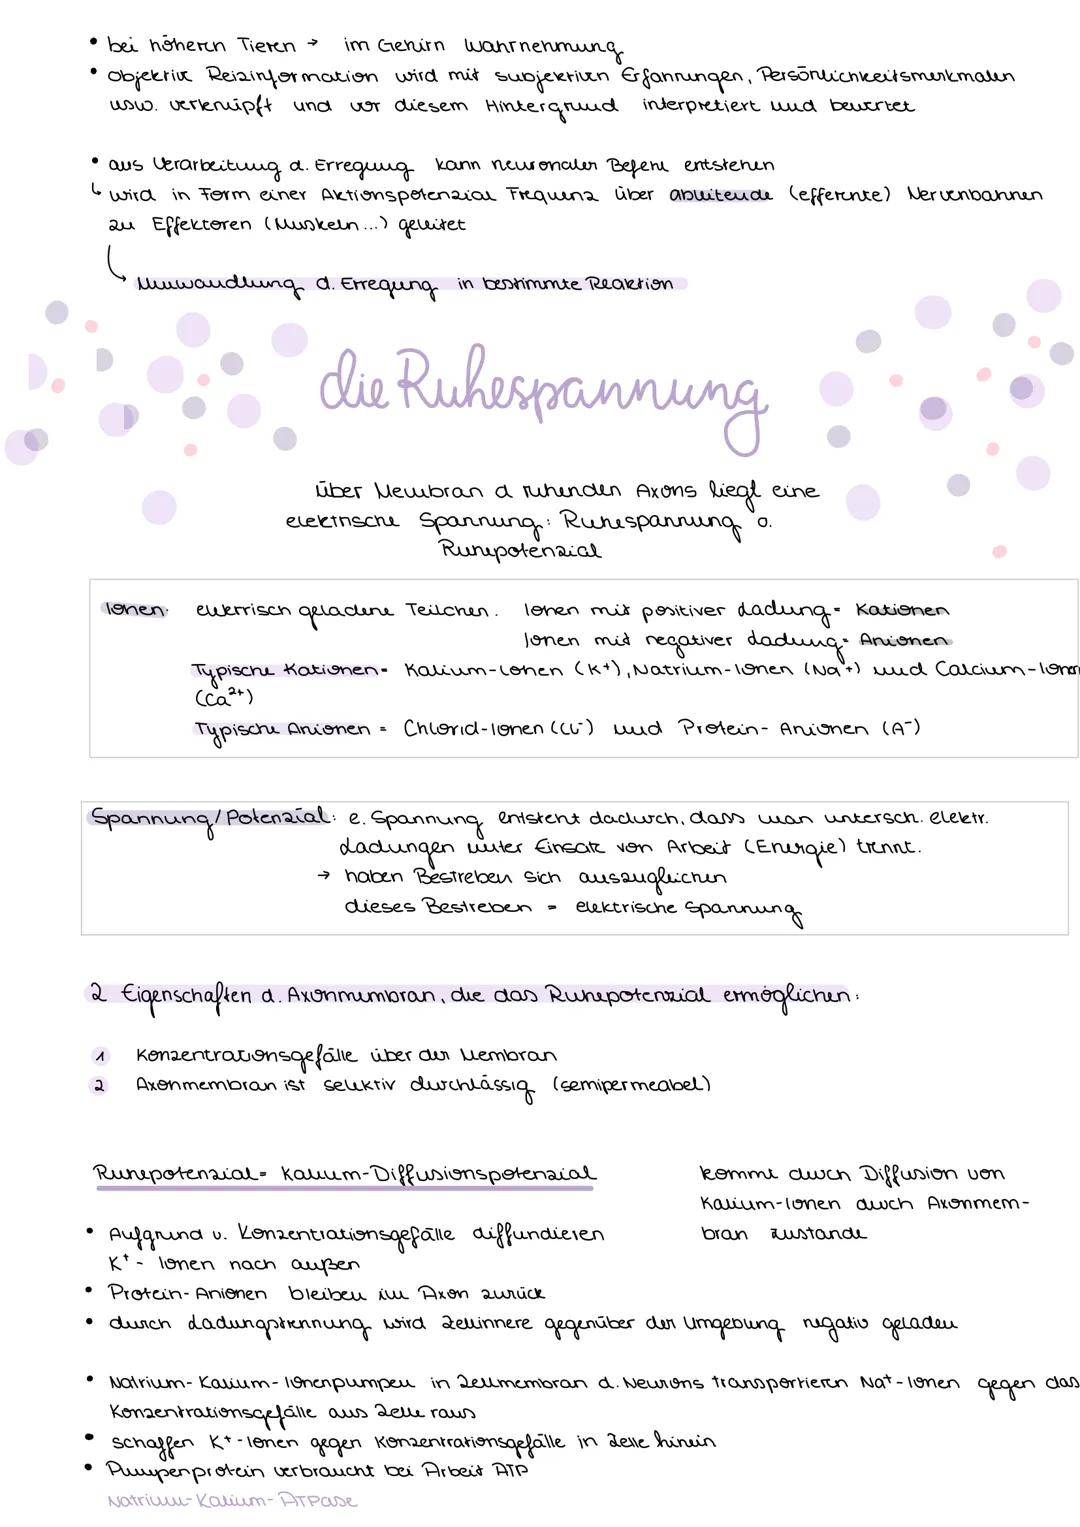 • bei höheren Tieren → im Gehirn Wahrnehmung
• objektive Reizinformation wird mit subjektiven Erfahrungen, Persönlichkeitsmerkmalen
usw. verknüpft und vor diesem Hintergrund interpretiert und bewertet
• aus Verarbeitung d. Erregung kann neuronaler Befehl entstehen
↳ wird in Form einer Aktionspotenzial Frequenz über ableitende (efferente) Nervenbahnen
zu Effektoren (Muskeln...) geleitet
↳ Umwandlung d. Erregung in bestimmte Reaktion
die Ruhespannung
über Membran d ruhenden Axons liegt eine
elektrische Spannung: Ruhespannung o.
Ruhepotenzial
Ionen: elektrisch geladene Teilchen. Ionen mit positiver Ladung = Kationen
Ionen mit negativer Ladung = Anionen
Typische Kationen = Kalium-Ionen (K⁺), Natrium-Ionen (Na⁺) und Calcium-Ionen
(Ca²⁺)
Typische Anionen = Chlorid-Ionen (Cl⁻) und Protein-Anionen (A⁻)
Spannung/Potenzial: e. Spannung entsteht dadurch, dass man untersch. elektr.
Ladungen unter Einsatz von Arbeit (Energie) trennt.
→ haben Bestreben sich auszugleichen
dieses Bestreben = elektrische Spannung
2 Eigenschaften d. Axonmembran, die das Ruhepotenzial ermöglichen:
1 Konzentrationsgefälle über der Membran
2 Axonmembran ist selektiv durchlässig (semipermeabel)
Ruhepotenzial = Kalium-Diffusionspotenzial
kommt durch Diffusion von
Kalium-Ionen durch Axonmem-
bran zustande
• Aufgrund v. Konzentrationsgefälle diffundieren
K⁺ - Ionen nach außen
• Protein-Anionen bleiben im Axon zurück
• durch Ladungstrennung wird Zellinnere gegenüber der Umgebung negativ geladen
• Natrium-Kalium-Ionenpumpen in Zellmembran d. Neurons transportieren Na⁺-Ionen gegen das
Konzentrationsgefälle aus Zelle raus
• schaffen K⁺-Ionen gegen Konzentrationsgefälle in Zelle hinein
• Pumpenprotein verbraucht bei Arbeit ATP
Natrium-Kalium-ATPase